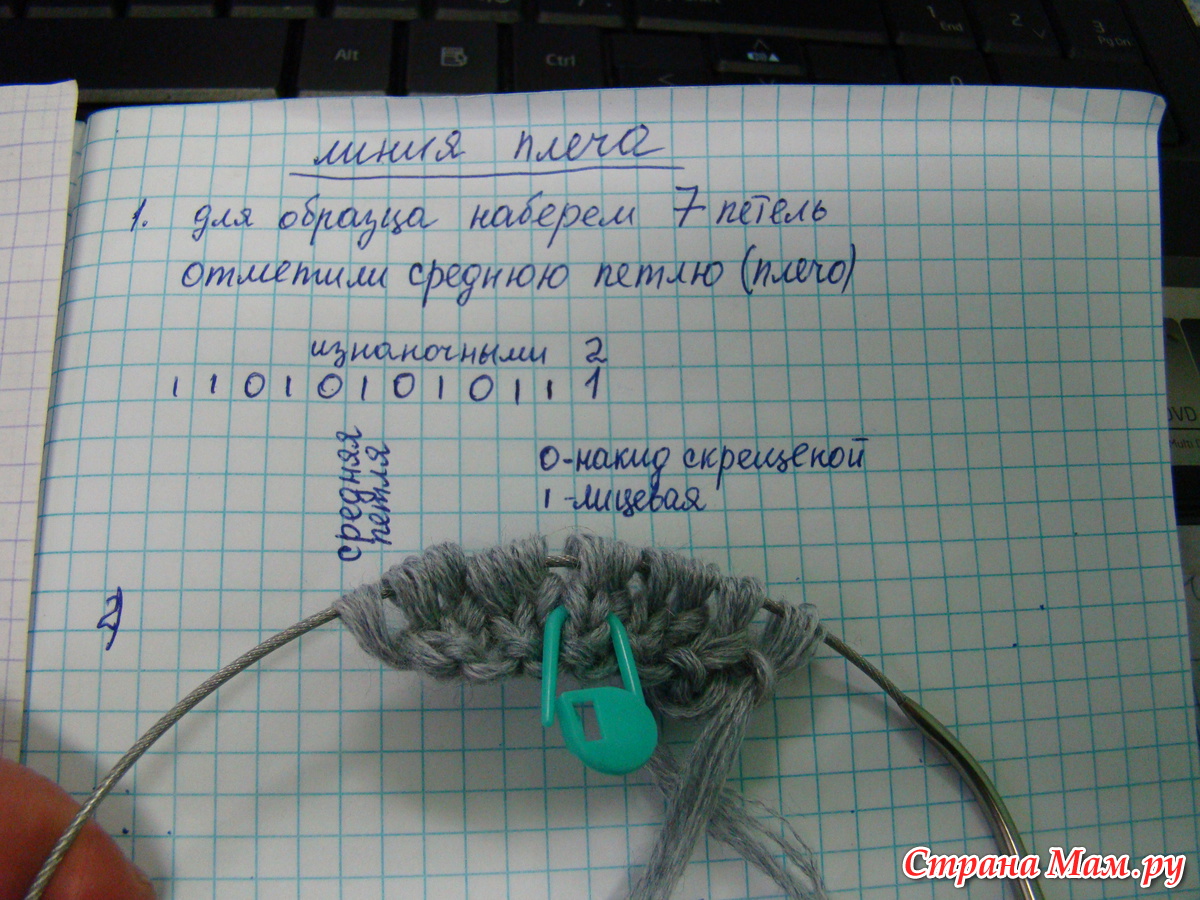 Alt
Ctrl
1
End
2
3
Pg Dn
0
линия плеча
1. для образца наберем 7 петель
отметили среднюю петлю (плечо)
изнаночными 2
1 1 0 1 0 1 0 1 0 1 1 1
средняя
петля
0-накид скрещеной
1-лицевая
2
Страна Мам.ру